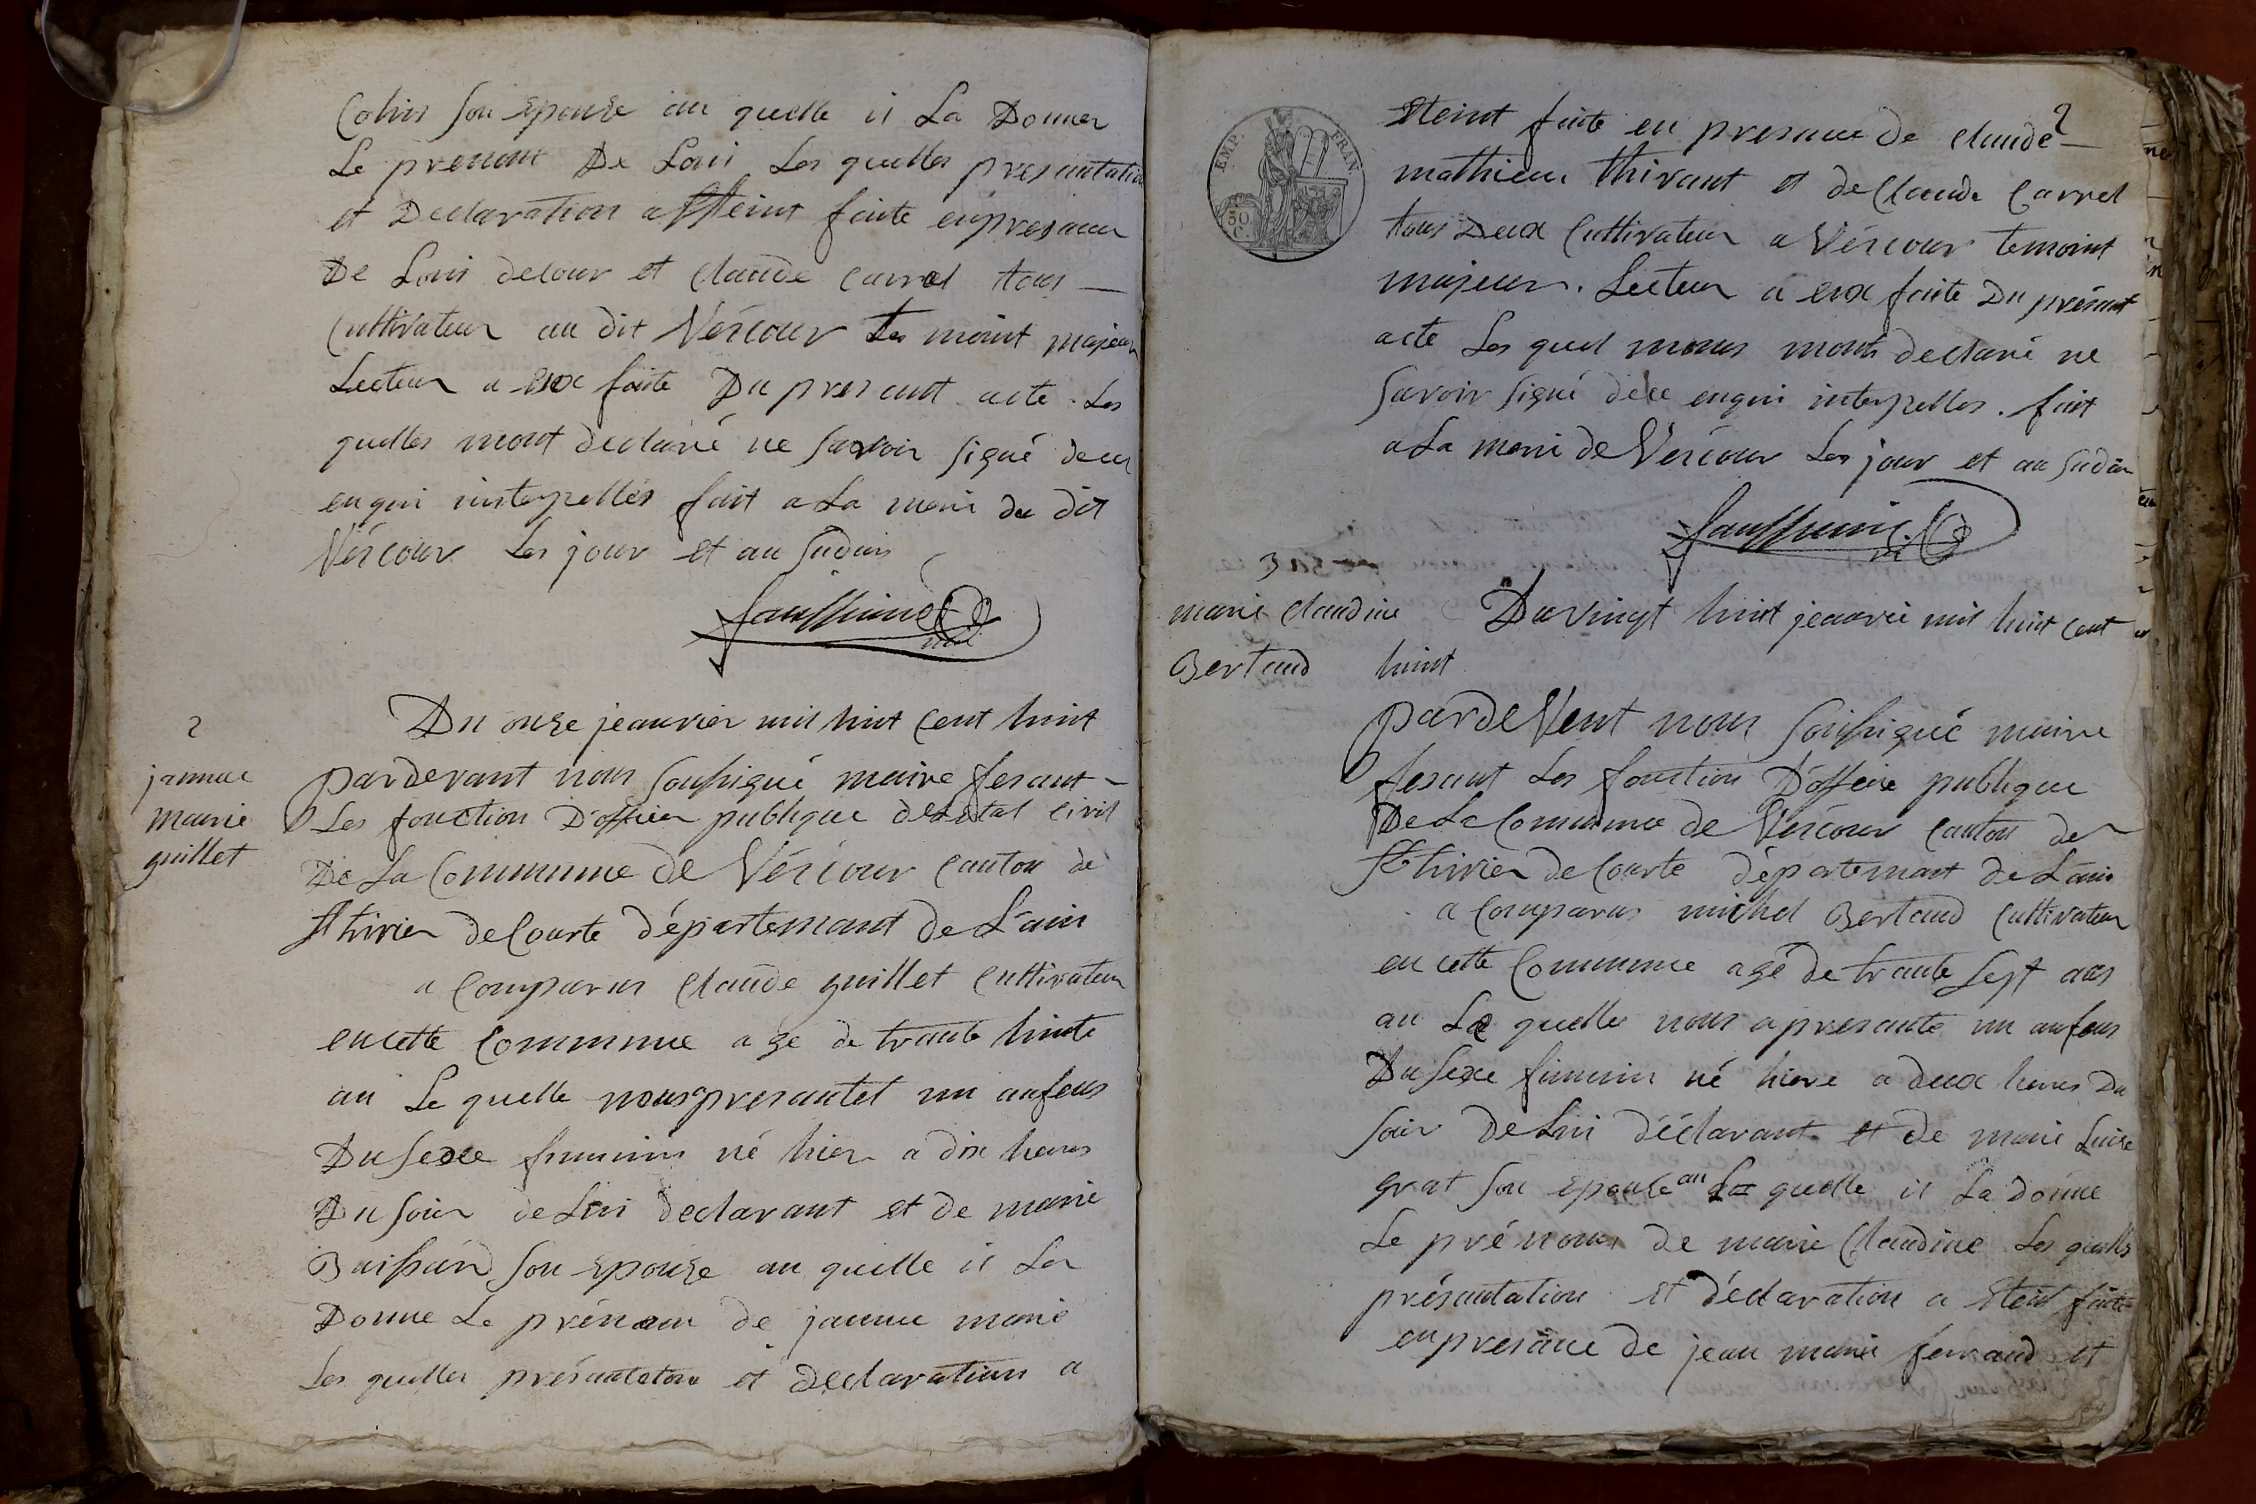 Colin son epouze au quelle il La Donner
Le prenont De Loui Les quelles presantation
et Declaration a Etteint faite en presance
De Louis delour et Claude Carrel tous
Cultivateur au dit Vércour tes moint majeur
Lecteur a eux faite Du presant acte. Les
quelles mont declaré ne savoir signé de ce
en qui interpellés fait a La merie du dit
Vércour Les jour et an sudin
2
jannae
marie
guillet
Du onze jeanvier mil huit Cent huit
par devant nous soussigué maire fesant
Les fonction D'officier publique de Letat civil
De La Commune de Vércour Canton de
St trivier de Courte départemant de L'ain
a Comparus Claude guillet Cultivateur
en cette Commune a gé de trante huite
an Le quelle nous a presantet un anfens
Du sexe feminin né hier a dix heures
Du soir de Lui declarant et de marie
son epouze au quelle il La
Donne Le prénom de jannne marie
Les quelles présantation et declaration a
EMP. FRAN.
30
C.
2
Eteint faite en presance de Claude
mathieu thivant et de Claude Carrel
tous Deux Cultivateur a Vércour temoint
majeur. Lecteur a eux faite Du présant
acte Les quel mous monts declaré ne
savoir signé de ce en qui interpelles. fait
a La merie de Vércour Les jour et an sudin
3
marie Claudine
Bertaud
Du vingt huit jeanvié mil huit Cent
huint
par de Vent nous soussigué maire
fesant Les fonction D'officie publique
De La Commune de Vércour canton de
St trivier de Courte départemant de L'ain
a Comparus michel Bertaud Cultivateur
en cette Commune agé de trante sept ans
an La quelle nous a presante un anfens
Du sexe feminin né hiere a deux heures Du
soir de Lui déclarant et de marie Luise
grat son epouse au La quelle il La donne
Le prénom de marie Claudine Les quelles
présantation et déclaration a Eteint faite
en presance de jean marie ferraud et